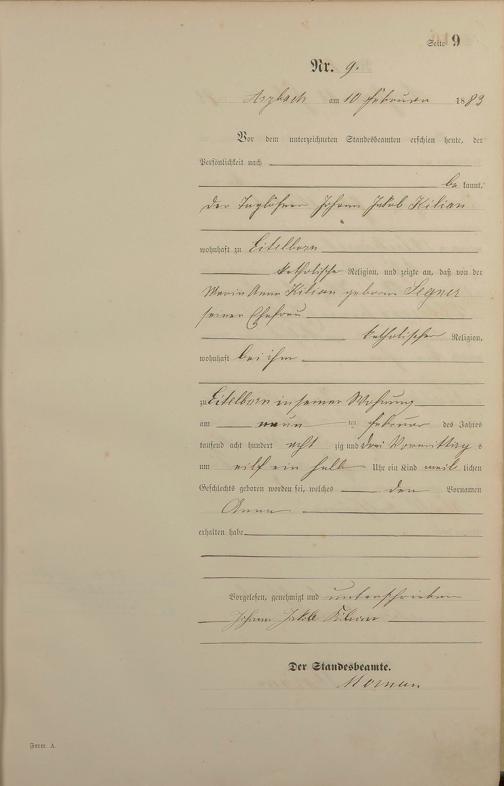 Seite 9
Nr. 9.
Arzbach am 10 Februar 1883
Vor dem unterzeichneten Standesbeamten erschien heute, der
Persönlichkeit nach
be kannt,
der Taglöhner Johann Jakob Kilian
wohnhaft zu Eitelborn
katholische Religion, und zeigte an, daß von der
Maria Anna Kilian geborne Segner
seiner Ehefrau
katholischer Religion,
wohnhaft bei ihm
zu Eitelborn in seiner Wohnung
am neun ten Februar des Jahres
tausend acht hundert acht zig und drei Vormittag s
um eilf ein halb Uhr ein Kind weib lichen
Geschlechts geboren worden sei, welches den Vornamen
Anna
erhalten habe
Vorgelesen, genehmigt und unterschrieben
Johann Jakob Kilian
Der Standesbeamte.
Form A.